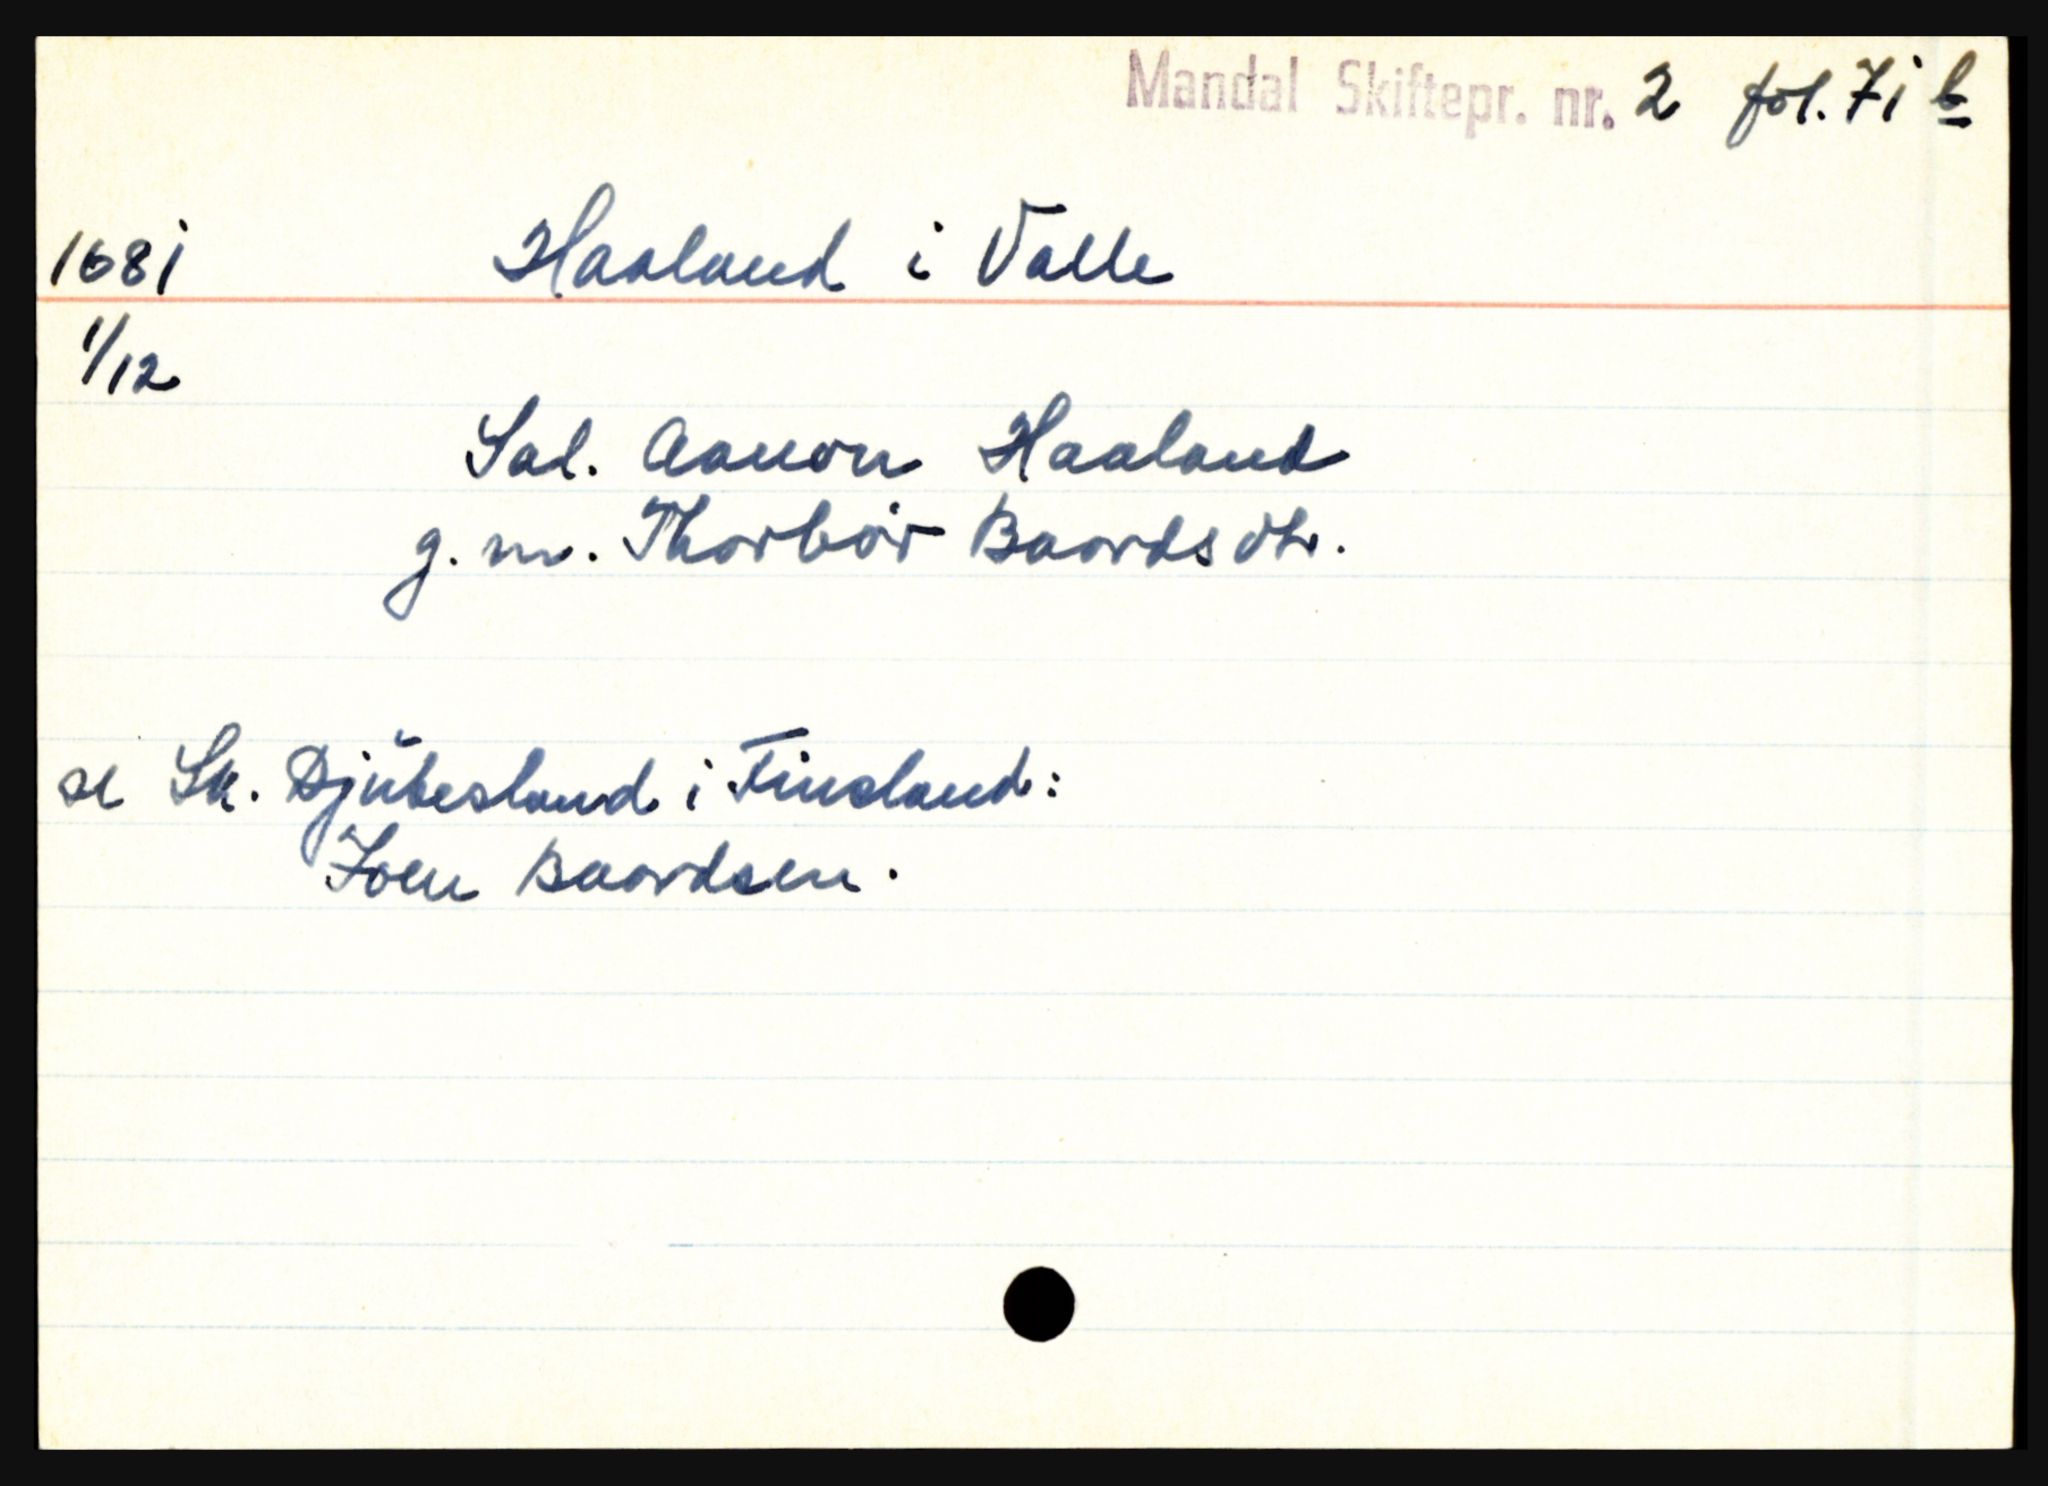 Mandal Skiftepr. nr. 2 fol. 71 b
1681 Haaland i Valle
1/12
Sal. Aanon Haaland
g. m. Thorbór Baardsdtr.
se Sk. Djübesland i Finsland:
Joen Baardsen.